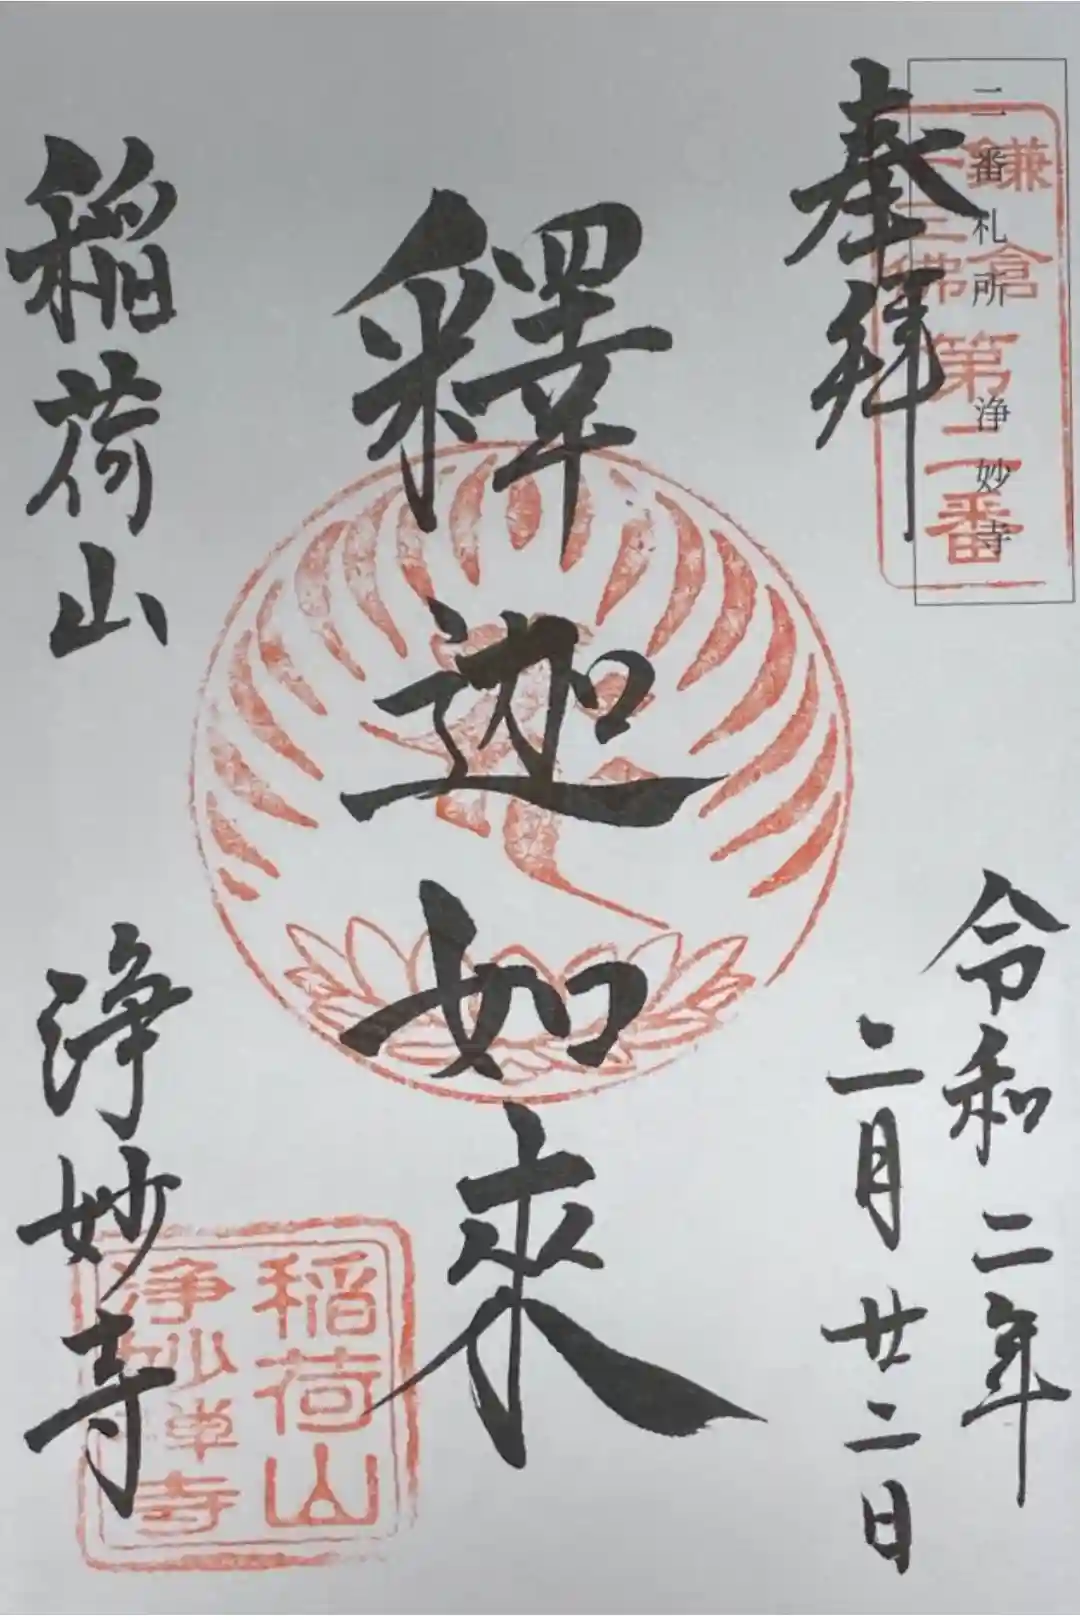 二番札所 浄妙寺
鎌倉
十三佛
第二番
奉拜
令和二年
二月廿二日
釋迦如來
稲荷山
浄妙寺
稲荷山
浄妙禅寺